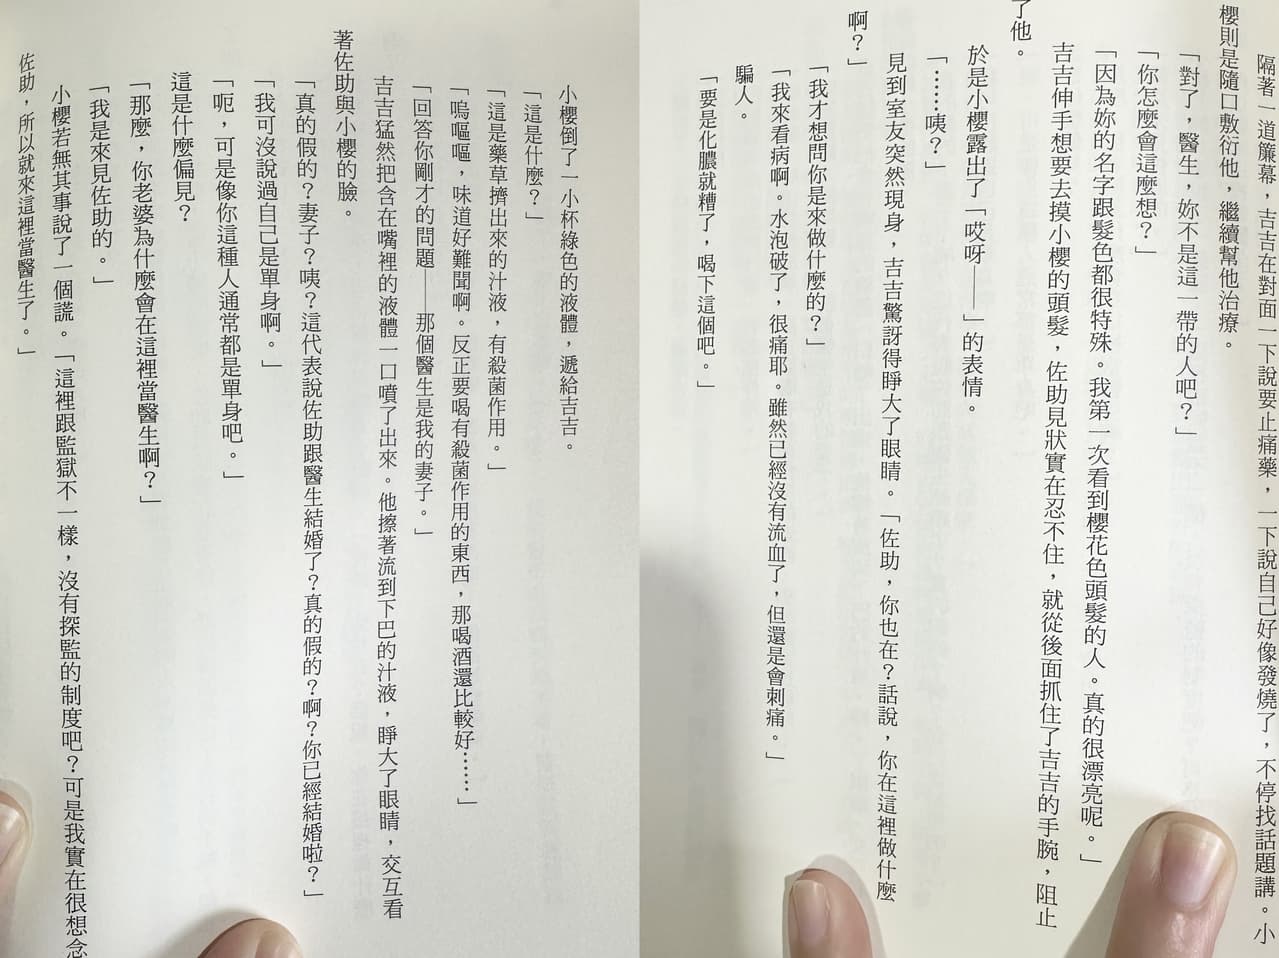 隔著一道簾幕，吉吉在對面一下說要止痛藥，一下說自己好像發燒了，不停找話題講。小
櫻則是隨口敷衍他，繼續幫他治療。
「對了，醫生，妳不是這一帶的人吧？」
「你怎麼會這麼想？」
「因為妳的名字跟髮色都很特殊。我第一次看到櫻花色頭髮的人。真的很漂亮呢。」
吉吉伸手想要去摸小櫻的頭髮，佐助見狀實在忍不住，就從後面抓住了吉吉的手腕，阻止
了他。
於是小櫻露出了「哎呀——」的表情。
「……咦？」
見到室友突然現身，吉吉驚訝得睜大了眼睛。「佐助，你也在？話說，你在這裡做什麼
啊？」
「我才想問你是來做什麼的？」
「我來看病啊。水泡破了，很痛耶。雖然已經沒有流血了，但還是會刺痛。」
騙人。
「要是化膿就糟了，喝下這個吧。」
小櫻倒了一小杯綠色的液體，遞給吉吉。
「這是什麼？」
「這是藥草擠出來的汁液，有殺菌作用。」
「嗚嘔嘔，味道好難聞啊。反正要喝有殺菌作用的東西，那喝酒還比較好……」
「回答你剛才的問題——那個醫生是我的妻子。」
吉吉猛然把含在嘴裡的液體一口噴了出來。他擦著流到下巴的汁液，睜大了眼睛，交互看
著佐助與小櫻的臉。
「真的假的？妻子？咦？這代表說佐助跟醫生結婚了？真的假的？啊？你已經結婚啦？」
「我可沒說過自己是單身啊。」
「呃，可是像你這種人通常都是單身吧。」
這是什麼偏見？
「那麼，你老婆為什麼會在這裡當醫生啊？」
「我是來見佐助的。」
小櫻若無其事說了一個謊。「這裡跟監獄不一樣，沒有探監的制度吧？可是我實在很想念
佐助，所以就來這裡當醫生了。」